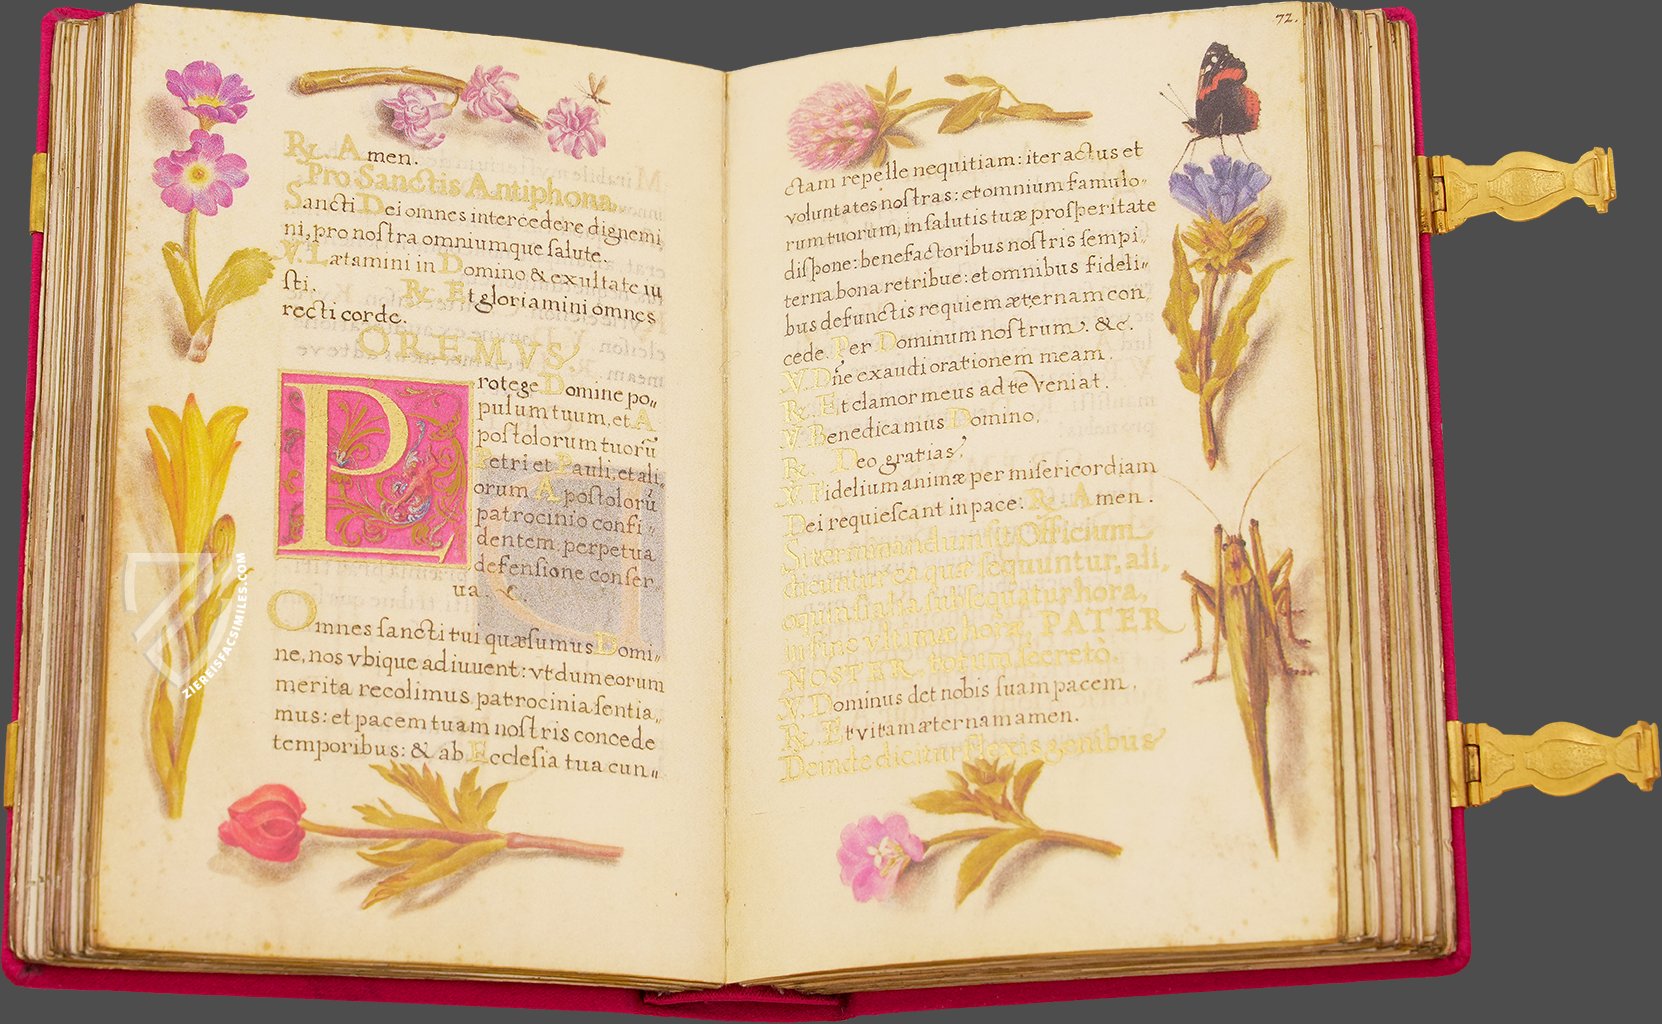 ℟. Amen.
Pro Sanctis Antiphona.
Sancti Dei omnes intercedere dignemi
ni, pro noſtra omniumque ſalute.
℣. Lætamini in Domino & exultate iu
ſti. ℟. Et gloriamini omnes
recti corde.
OREMVS.
Protege Domine po„
pulum tuum, et A
poſtolorum tuorū
Petri et Pauli, et ali,
orum Apoſtolorū
patrocinio confi„
dentem, perpetua
defenſione conſer
ua.
Omnes ſancti tui quæſumus Domi„
ne, nos vbique adiuuent: vt dum eorum
merita recolimus patrocinia ſentia„
mus: et pacem tuam noſtris concede
temporibus: & ab Eccleſia tua cun„
72.
ctam repelle nequitiam: iter actus et
voluntates noſtras: et omnium famulo„
rum tuorum, in ſalutis tuæ proſperitate
diſpone: benefactoribus noſtris ſempi„
terna bona retribue: et omnibus fideli„
bus defunctis requiem æternam con
cede. Per Dominum noſtrum. &c.
℣. Dñe exaudi orationem meam.
℟. Et clamor meus ad te veniat.
℣. Benedicamus Domino.
℟. Deo gratias.
℣. Fidelium animæ per miſericordiam
Dei requieſcant in pace. ℟. Amen.
Si terminandum ſit Officium
dicuntur ea quæ ſequuntur, ali,
oquin ſi alia ſubſequatur hora,
in fine vltimæ horæ, PATER
NOSTER. totum ſecretò.
℣. Dominus det nobis ſuam pacem.
℟. Et vitam æternam amen.
Deinde dicitur flexis genibus
ZIEREISFACSIMILES.COM